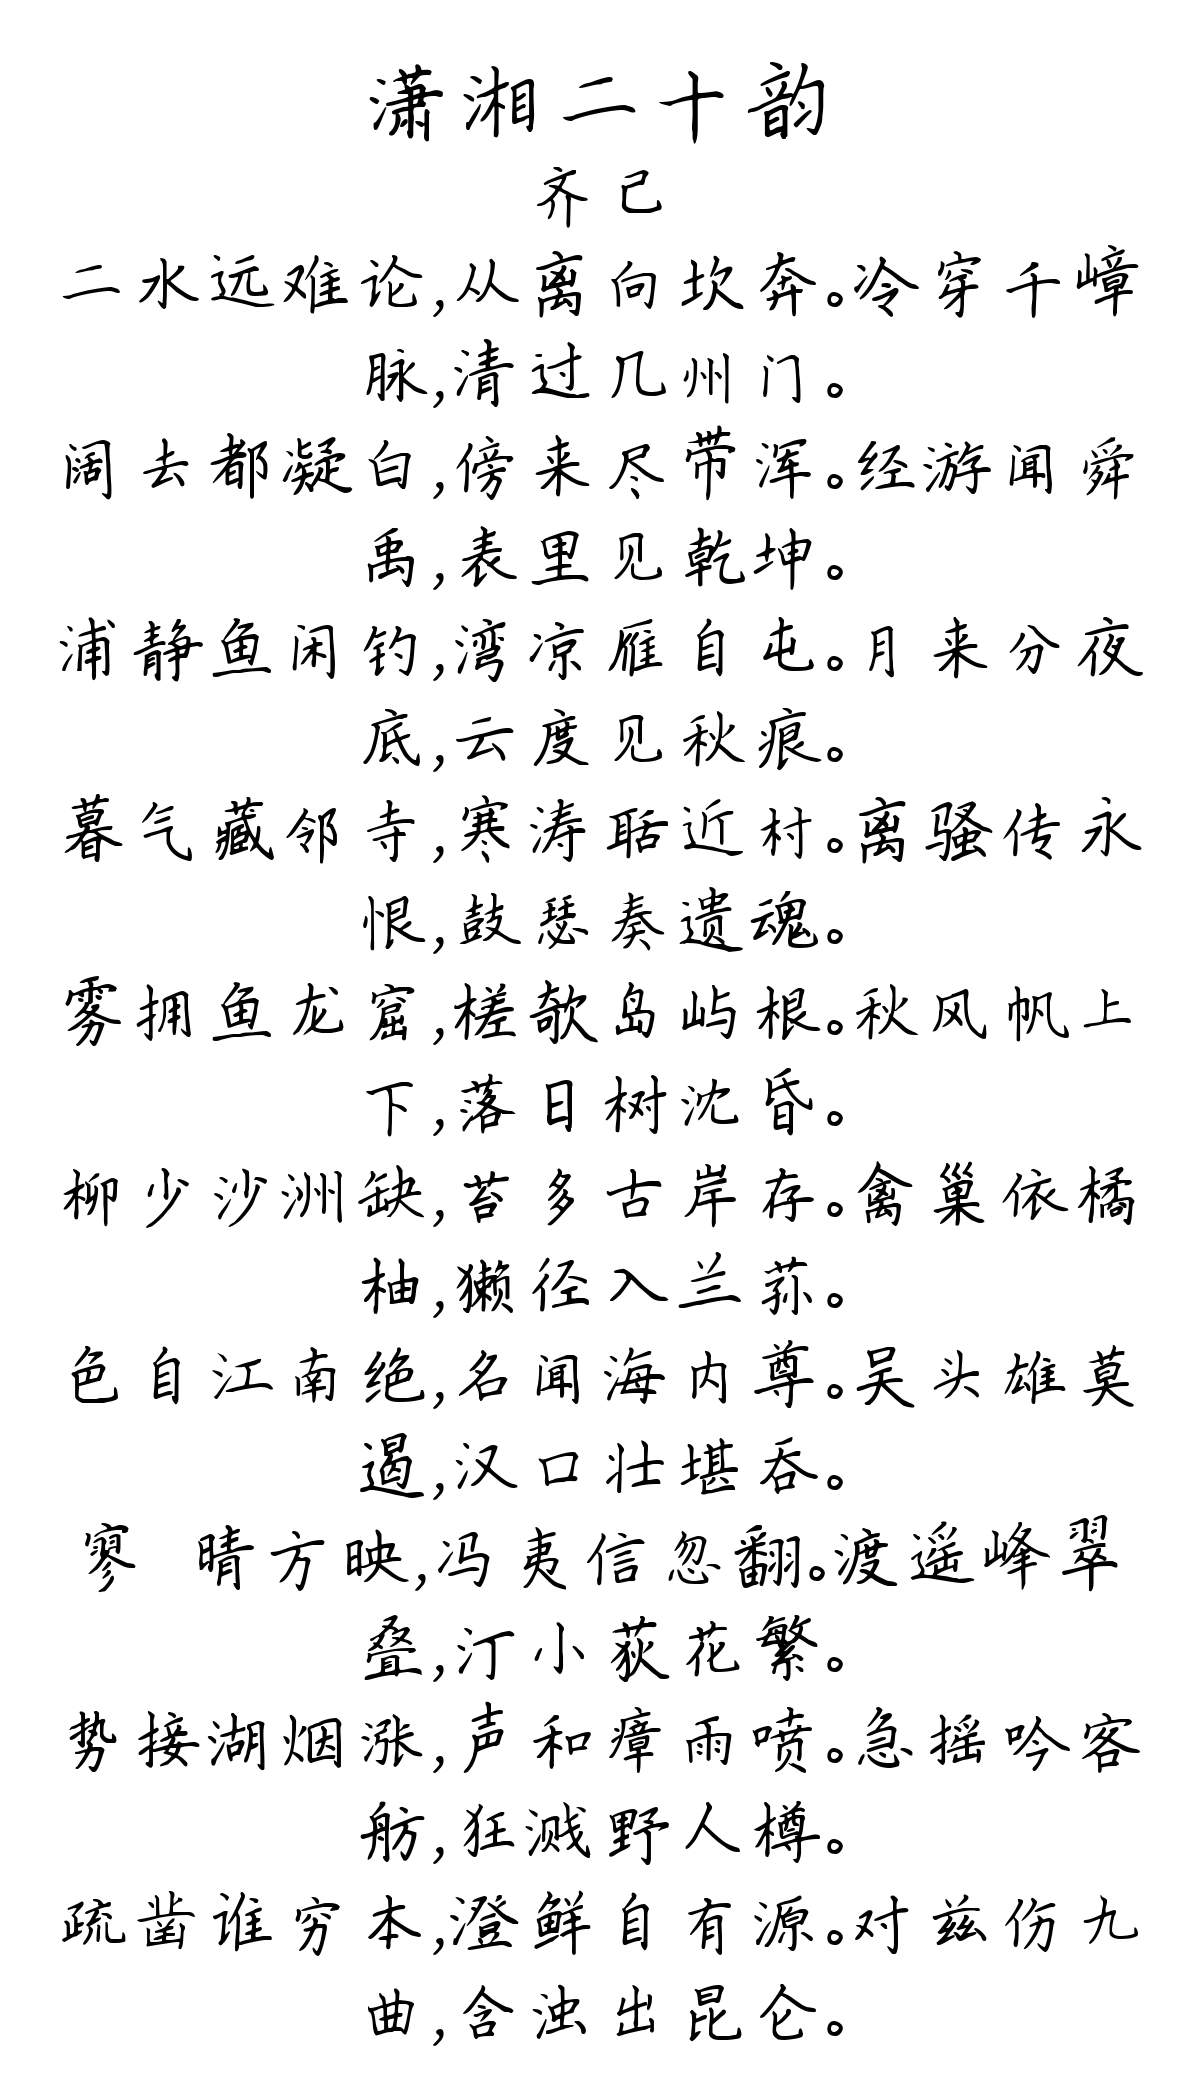 潇湘二十韵
齐己
二水远难论,从离向坎奔。冷穿千嶂
脉,清过几州门。
阔去都凝白,傍来尽带浑。经游闻舜
禹,表里见乾坤。
浦静鱼闲钓,湾凉雁自屯。月来分夜
底,云度见秋痕。
暮气藏邻寺,寒涛聒近村。离骚传永
恨,鼓瑟奏遗魂。
雾拥鱼龙窟,槎欹岛屿根。秋风帆上
下,落日树沈昏。
柳少沙洲缺,苔多古岸存。禽巢依橘
柚,獭径入兰荪。
色自江南绝,名闻海内尊。吴头雄莫
遏,汉口壮堪吞。
寥 晴方映,冯夷信忽翻。渡遥峰翠
叠,汀小荻花繁。
势接湖烟涨,声和瘴雨喷。急摇吟客
舫,狂溅野人樽。
疏凿谁穷本,澄鲜自有源。对兹伤九
曲,含浊出昆仑。